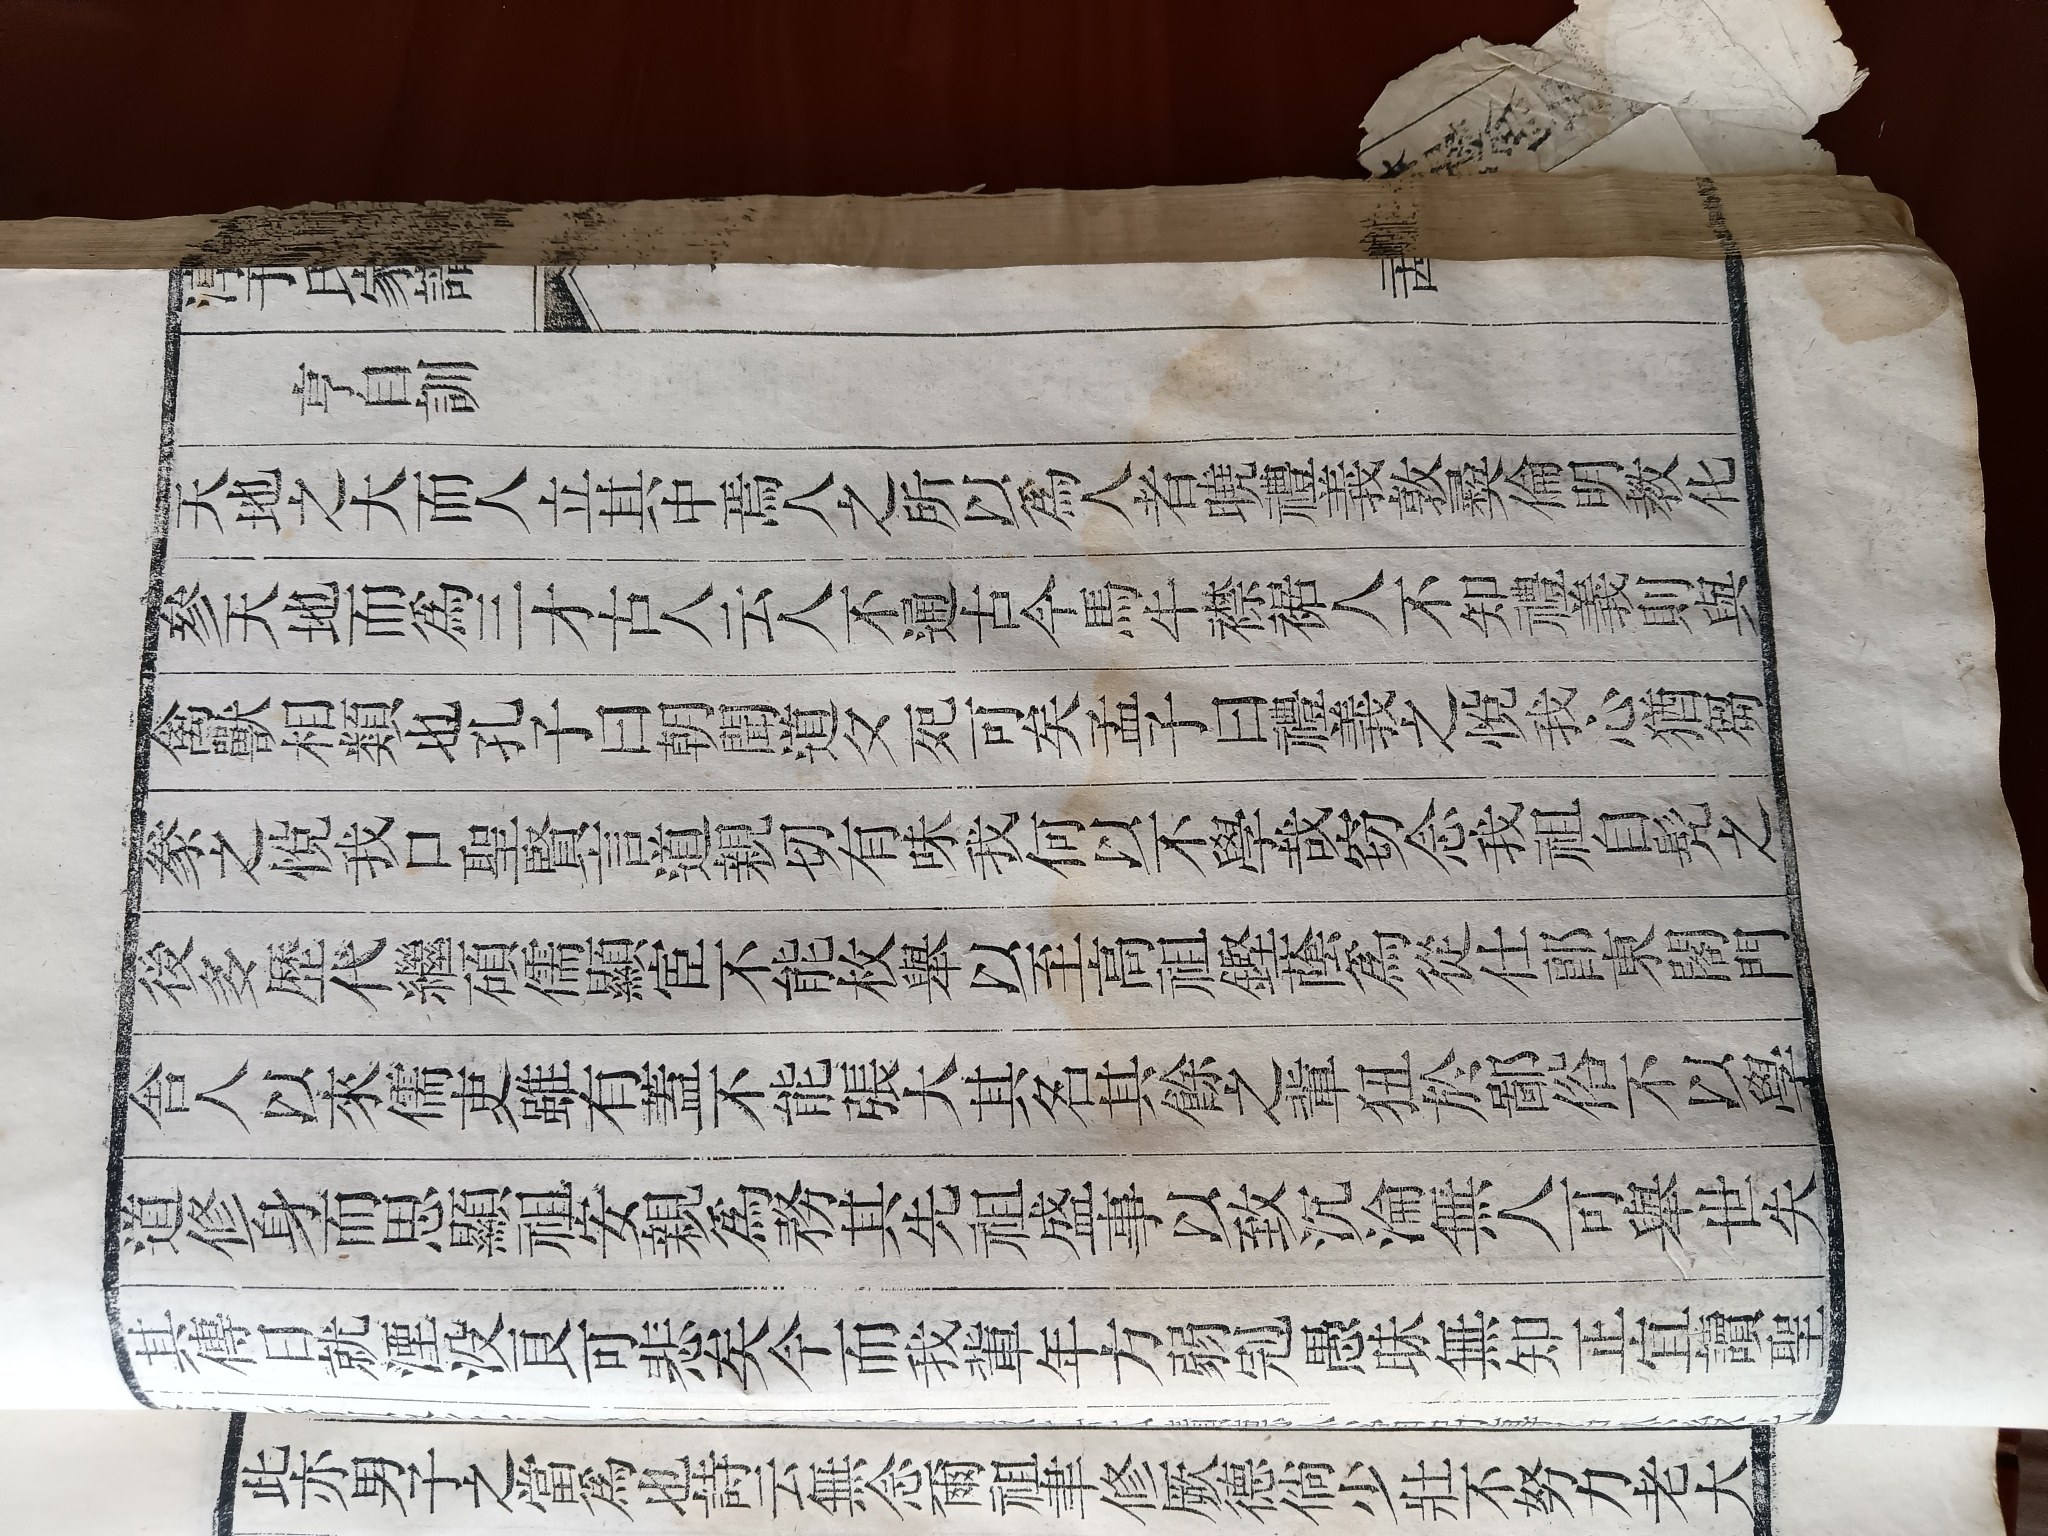 淳于氏家譜
亨自訓
天地之大而人立其中焉人之所以爲人者曉禮義敦彝倫明教化
參天地而爲三才古人云人不通古今馬牛襟裾人不知禮義則與
禽獸相類也孔子曰朝聞道夕死可矣孟子曰禮義之悅我心猶芻
豢之悅我口聖賢言道親切有味我何以不學哉窃念我祖自髡之
後多歷代繼碩儒顯宦不能枚舉以至高祖鏗蔭爲從仕郎東閣門
舍人以來儒吏雖有蓋不能張大其名其餘之輩狃於鄙俗不以學
道修身而思顯祖安親爲務其先祖盛事以致沉淪無人可舉世失
其傳日就湮沒良可悲矣今而我輩年方弱冠愚昧無知正宜讀聖
此亦男子之當爲也詩云無念爾祖聿修厥德倘少壯不努力老大